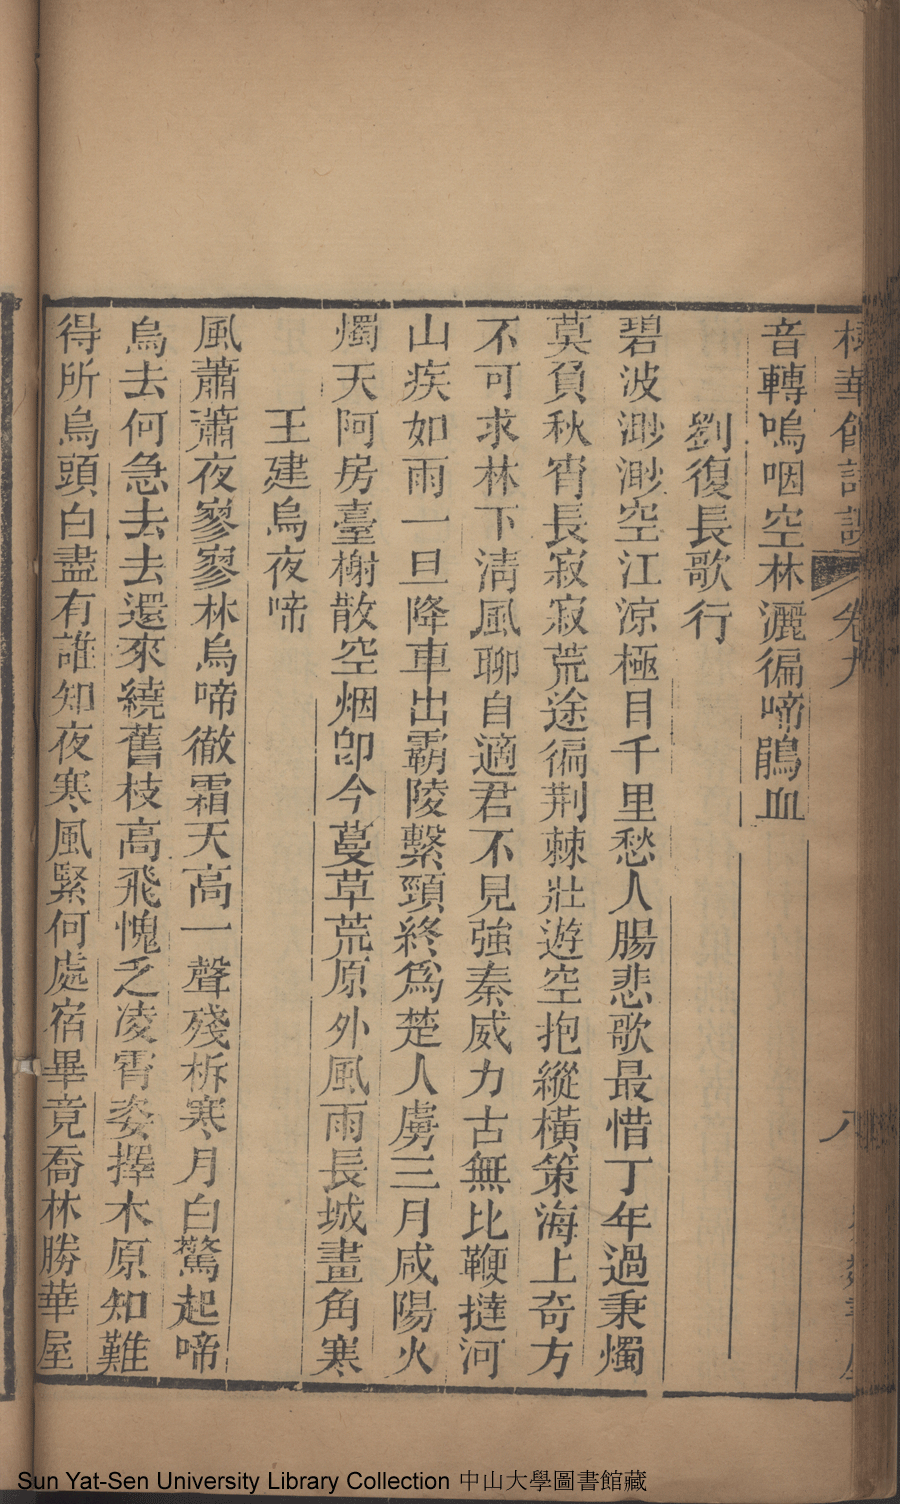 音轉嗚咽空林灑徧啼鵑血
劉復長歌行
碧波渺渺空江涼極目千里愁人腸悲歌最惜丁年過秉燭
莫負秋宵長寂寂荒途徧荆棘壯遊空抱縱橫策海上奇方
不可求林下淸風聊自適君不見強秦威力古無比鞭撻河
山疾如雨一旦降車出霸陵繫頸終爲楚人虜三月咸陽火
燭天阿房臺榭散空烟卽今蔓草荒原外風雨長城畫角寒
王建烏夜啼
風蕭蕭夜寥寥林烏啼徹霜天高一聲殘柝寒月白驚起啼
烏去何急去去還來繞舊枝高飛愧乏凌霄姿擇木原知難
得所烏頭白盡有誰知夜寒風緊何處宿畢竟喬林勝華屋
卷九
八
Sun Yat-Sen University Library Collection 中山大學圖書館藏